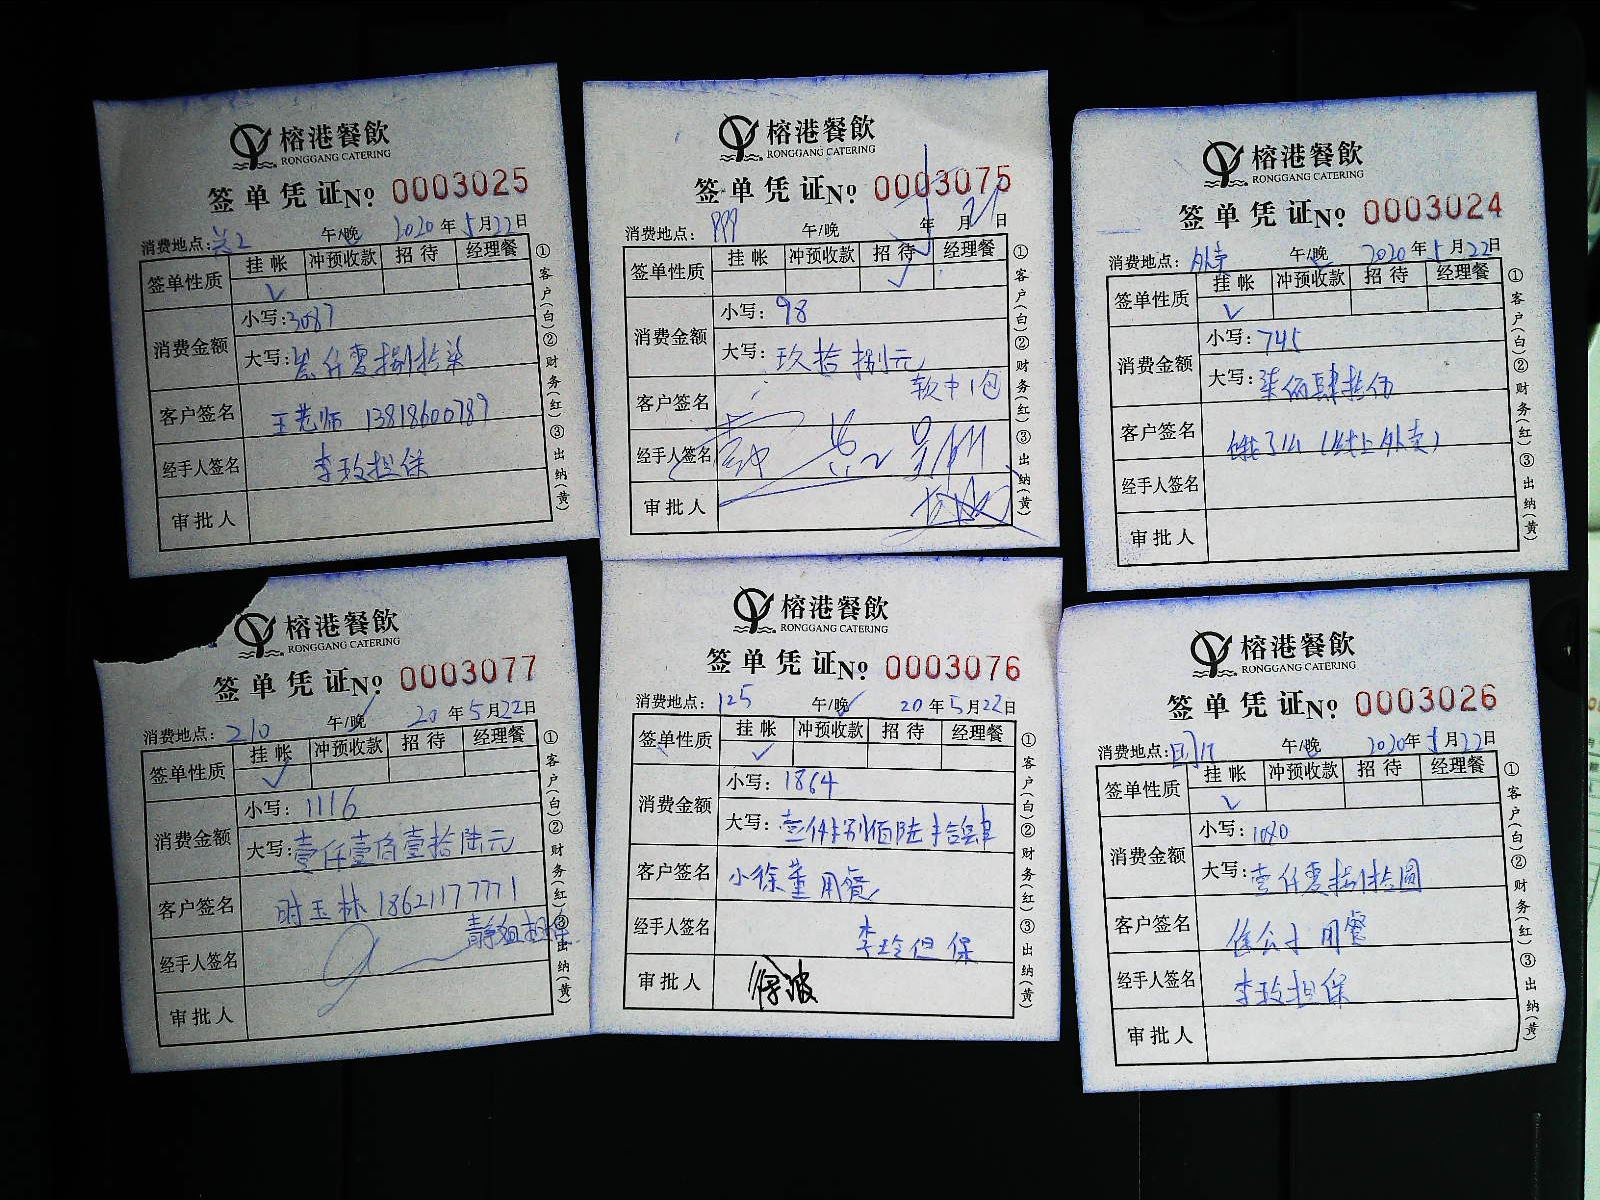 榕港餐飲
RONGGANG CATERING
签单凭证No. 0003025
消费地点: 午/晚 2020年5月22日
签单性质 挂帐 冲预收款 招待 经理餐
✓
消费金额 小写:3087
大写: 仟零捌拾柒
客户签名 王老师 13818600789
经手人签名 李玲担保
审批人
①客户(白)②财务(红)③出纳(黄)
榕港餐飲
RONGGANG CATERING
签单凭证No. 0003075
消费地点: 999 午/晚 年 月21日
签单性质 挂帐 冲预收款 招待 经理餐
✓
消费金额 小写: 98
大写: 玖拾捌元
软中1包
客户签名
经手人签名
审批人
①客户(白)②财务(红)③出纳(黄)
榕港餐飲
RONGGANG CATERING
签单凭证No. 0003024
消费地点: 外卖 午/晚 2020年5月22日
签单性质 挂帐 冲预收款 招待 经理餐
✓
消费金额 小写: 745
大写: 柒佰肆拾伍
客户签名 饿了么(线上外卖)
经手人签名
审批人
①客户(白)②财务(红)③出纳(黄)
榕港餐飲
RONGGANG CATERING
签单凭证No. 0003077
消费地点: 210 午/晚 20年5月22日
签单性质 挂帐 冲预收款 招待 经理餐
✓
消费金额 小写: 1116
大写: 壹仟壹佰壹拾陆元
客户签名 时玉林 18621177771
静姐担保
经手人签名
审批人
①客户(白)②财务(红)③出纳(黄)
榕港餐飲
RONGGANG CATERING
签单凭证No. 0003076
消费地点: 125 午/晚 20年5月22日
签单性质 挂帐 冲预收款 招待 经理餐
✓
消费金额 小写: 1864
大写: 壹仟捌佰陆拾肆
客户签名 小徐董用餐
经手人签名 李玲担保
审批人 徐波
①客户(白)②财务(红)③出纳(黄)
榕港餐飲
RONGGANG CATERING
签单凭证No. 0003026
消费地点: 午/晚 2020年5月22日
签单性质 挂帐 冲预收款 招待 经理餐
✓
消费金额 小写: 1080
大写: 壹仟零捌拾圆
客户签名 徐公子用餐
经手人签名 李玲担保
审批人
①客户(白)②财务(红)③出纳(黄)